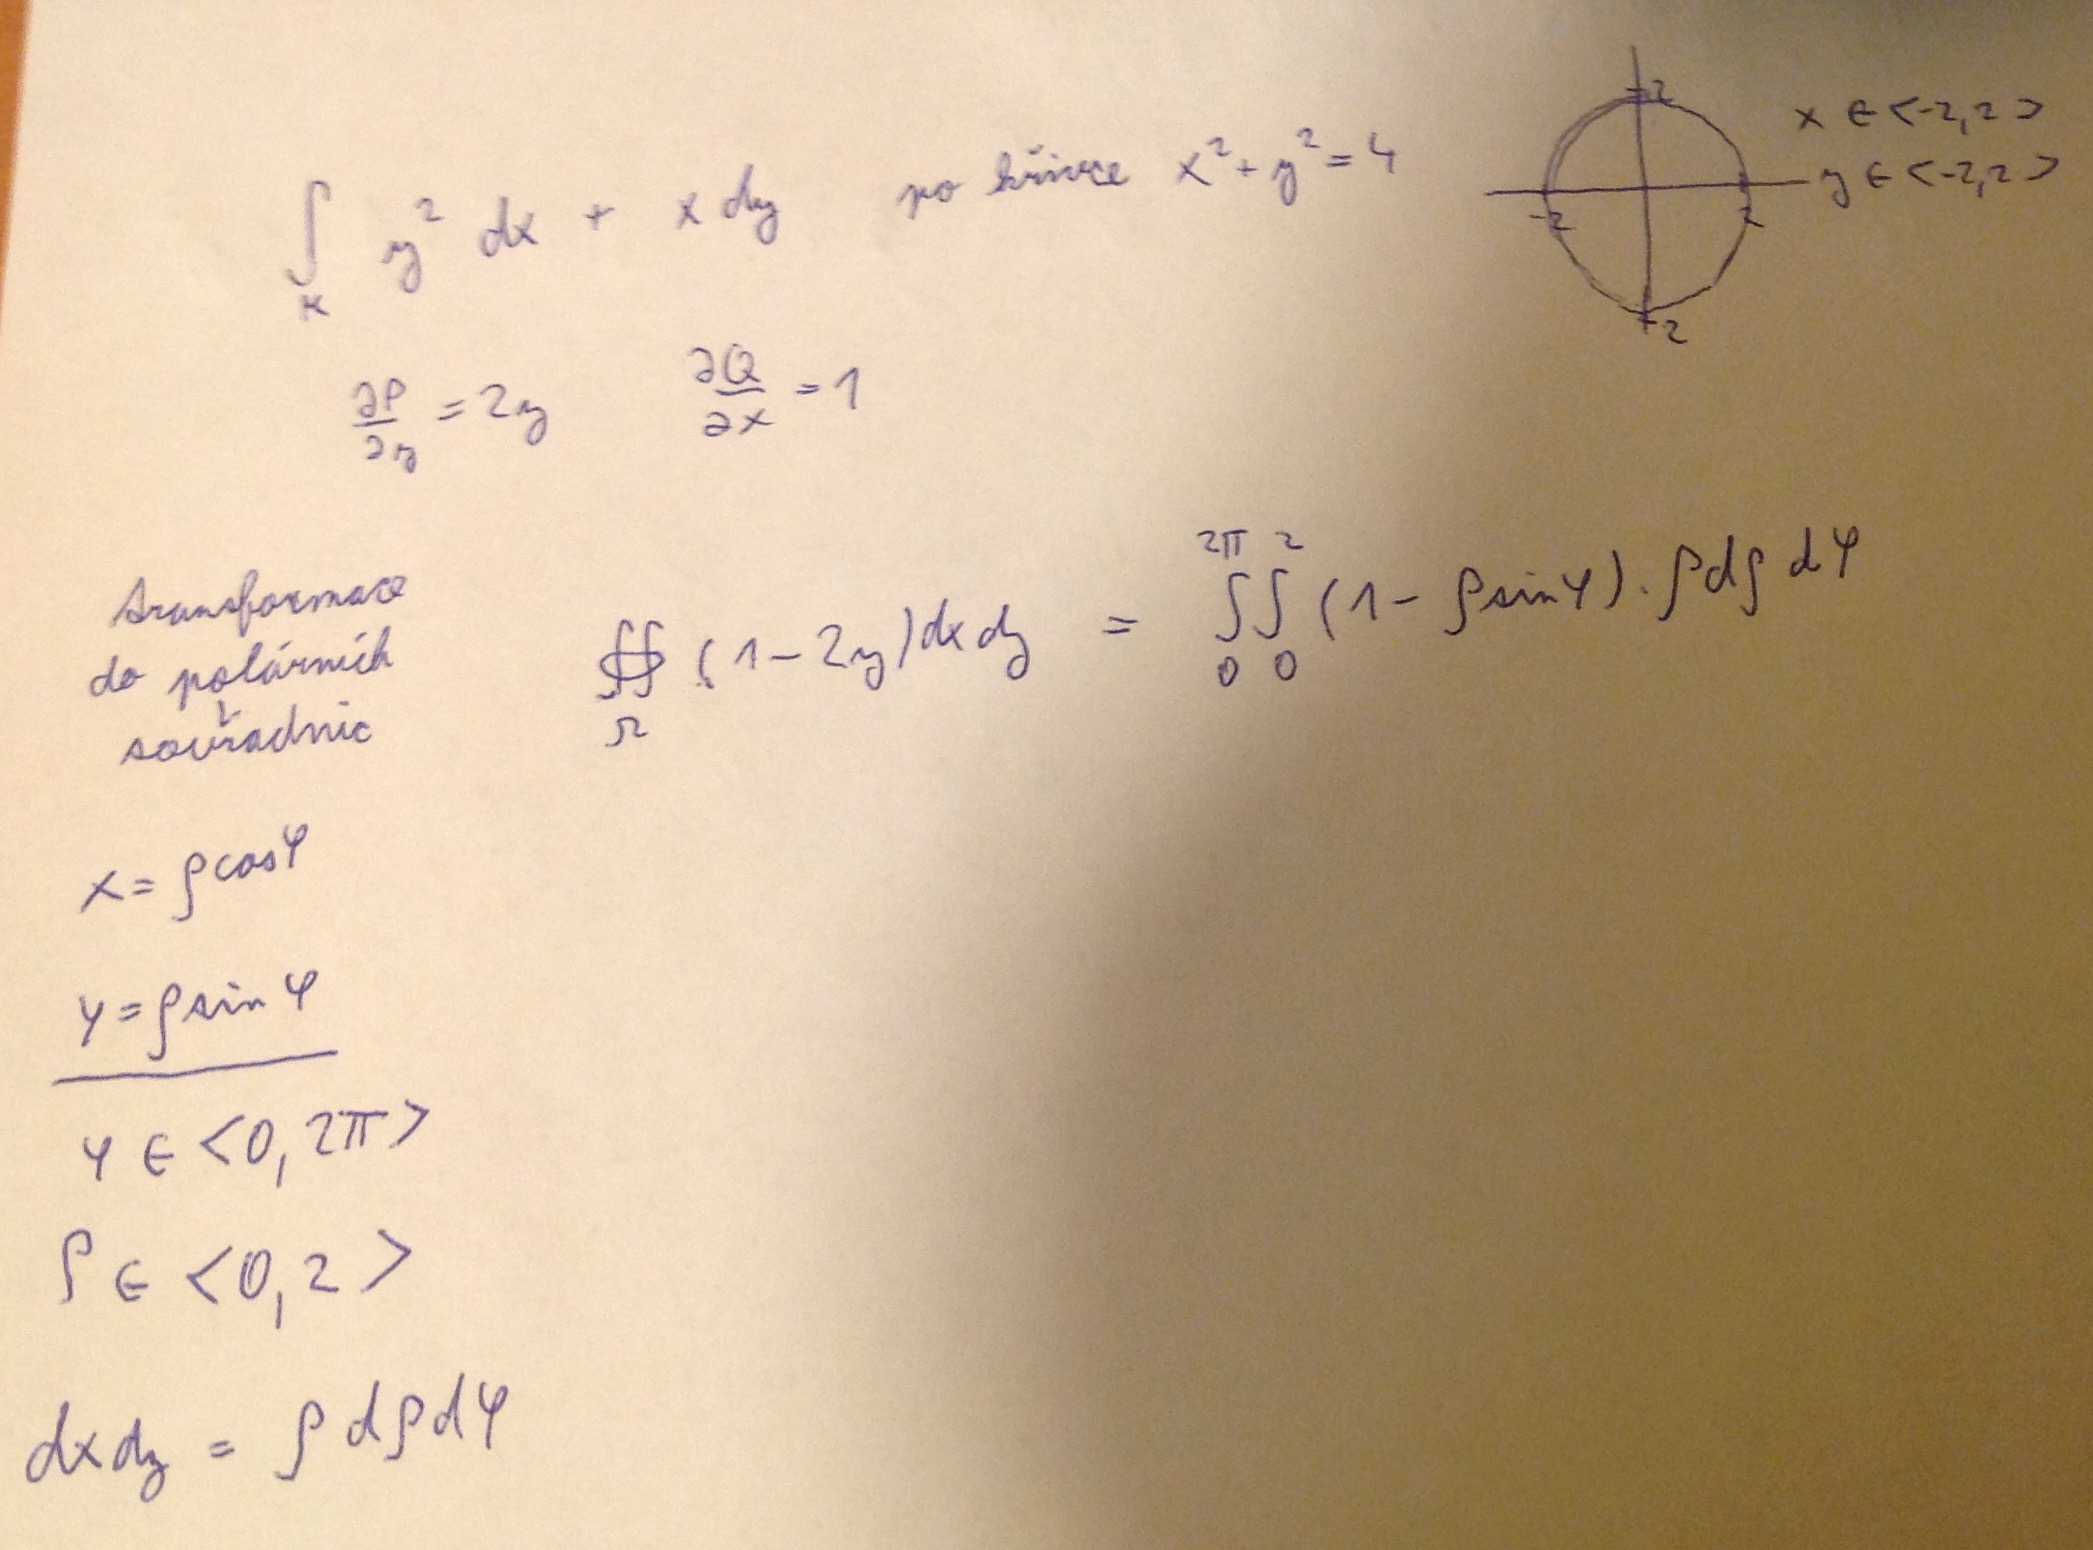 ∫_K y² dx + x dy po křivce x² + y² = 4
2
-2
2
-2
x ∈ <-2, 2>
y ∈ <-2, 2>
∂P/∂y = 2y ∂Q/∂x = 1
transformace
do polárních
souřadnic
∯_Ω (1 - 2y) dx dy = ∫_0^{2π} ∫_0^2 (1 - ρ sin φ) · ρ dρ dφ
x = ρ cos φ
y = ρ sin φ
φ ∈ <0, 2π>
ρ ∈ <0, 2>
dx dy = ρ dρ dφ